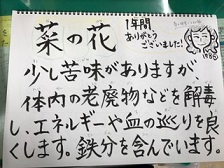 菜の花
1年間
ありがとう
ございました!
少し苦味がありますが
体内の老廃物などを解毒
し、エネルギーや血の巡りを良
くします。鉄分を含んでいます。